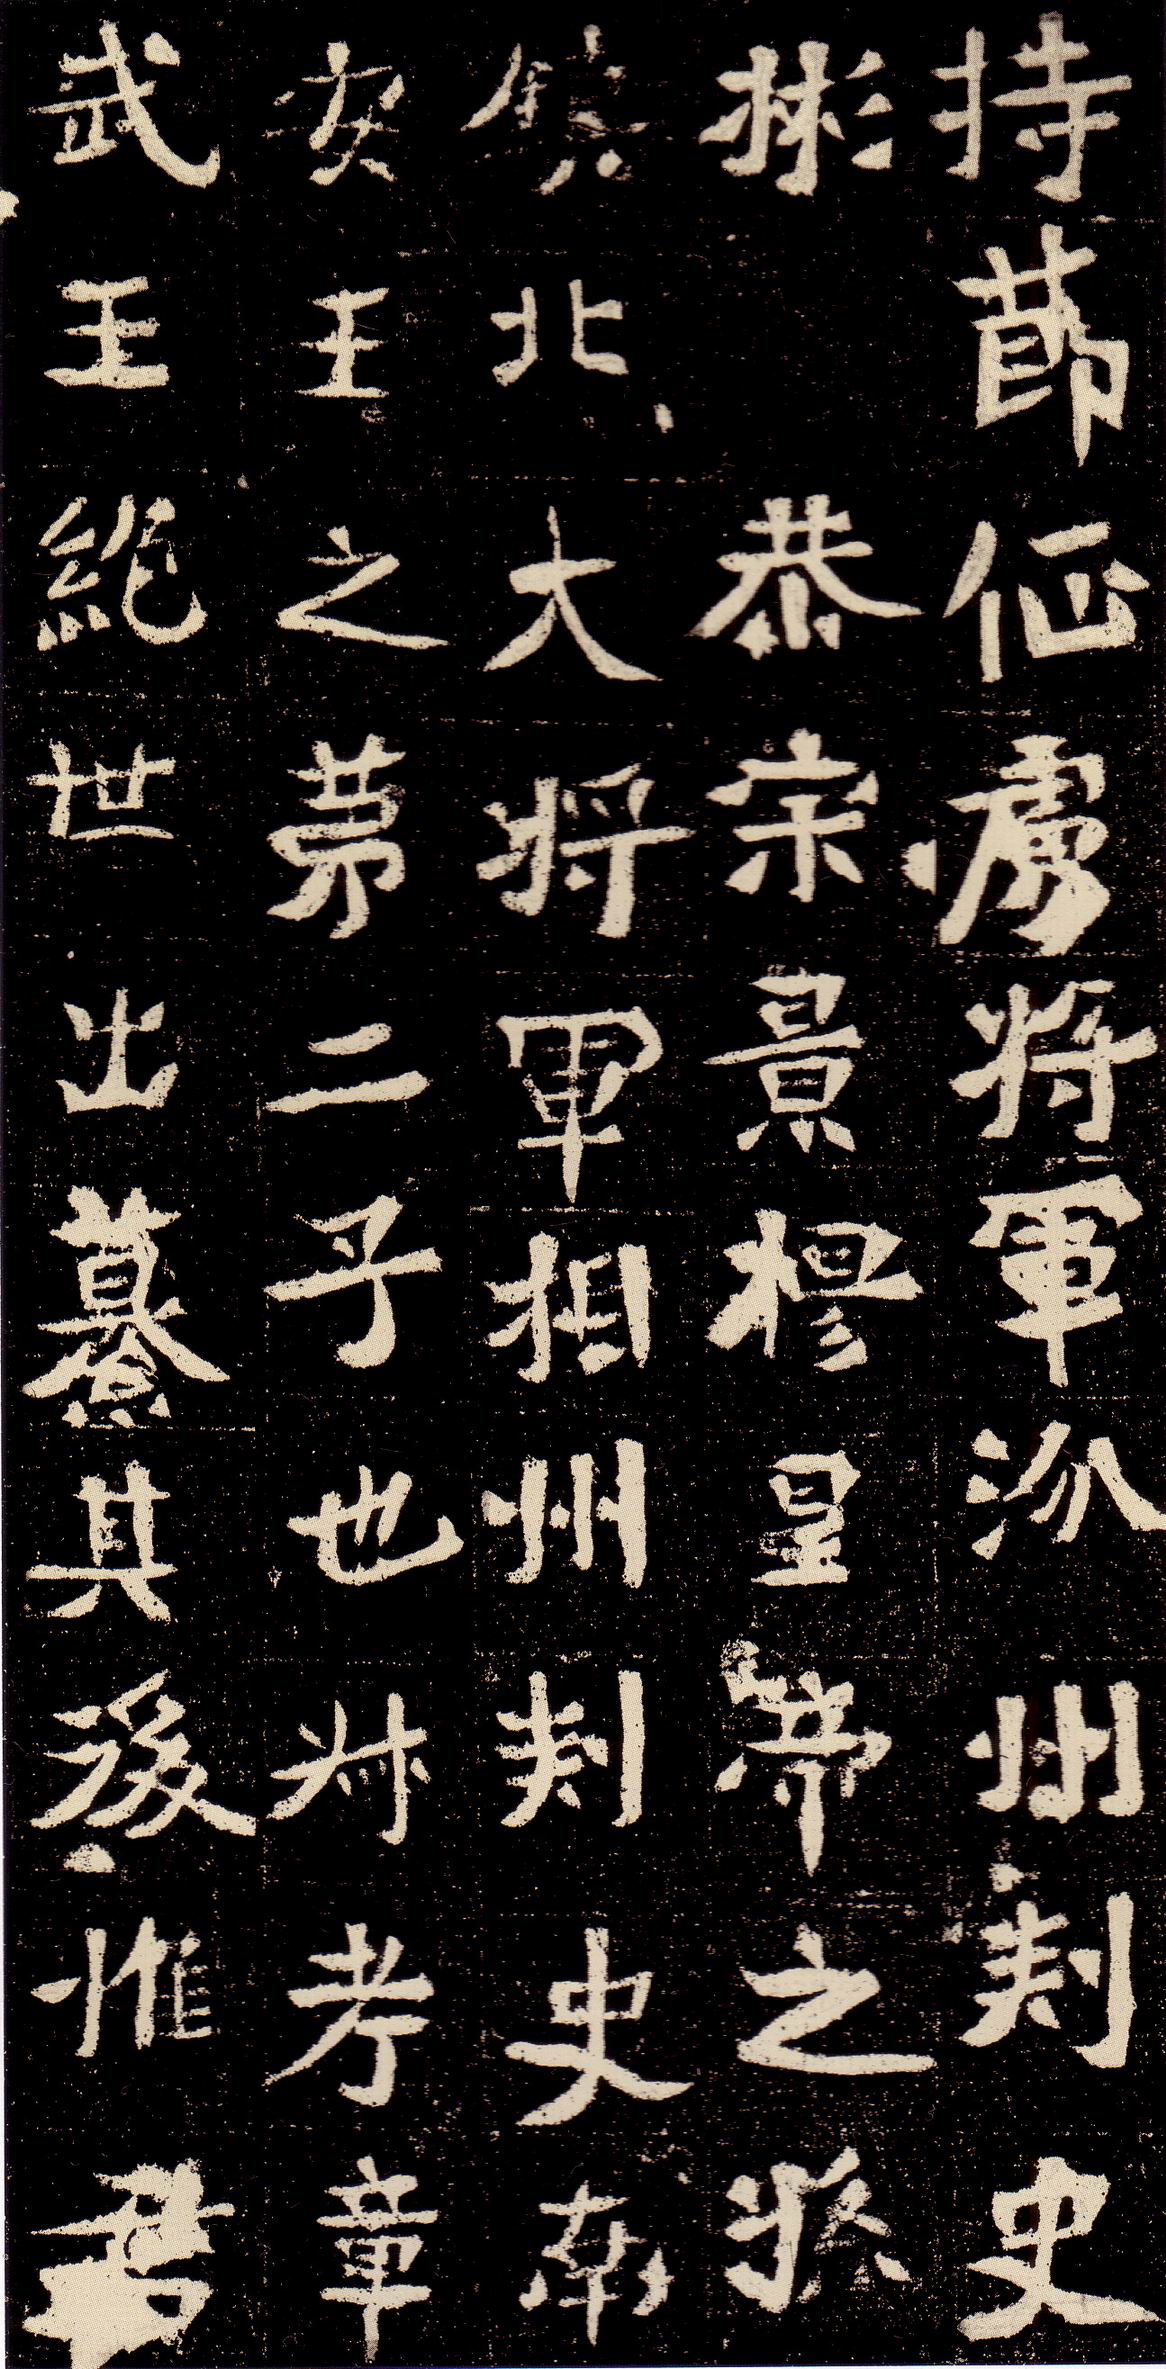 持節征虜將軍汾州刺史
彬恭宗景穆皇帝之孫
鎮北大將軍相州刺史南
安王之第二子也叔考章
武王絕世出纂其後惟君